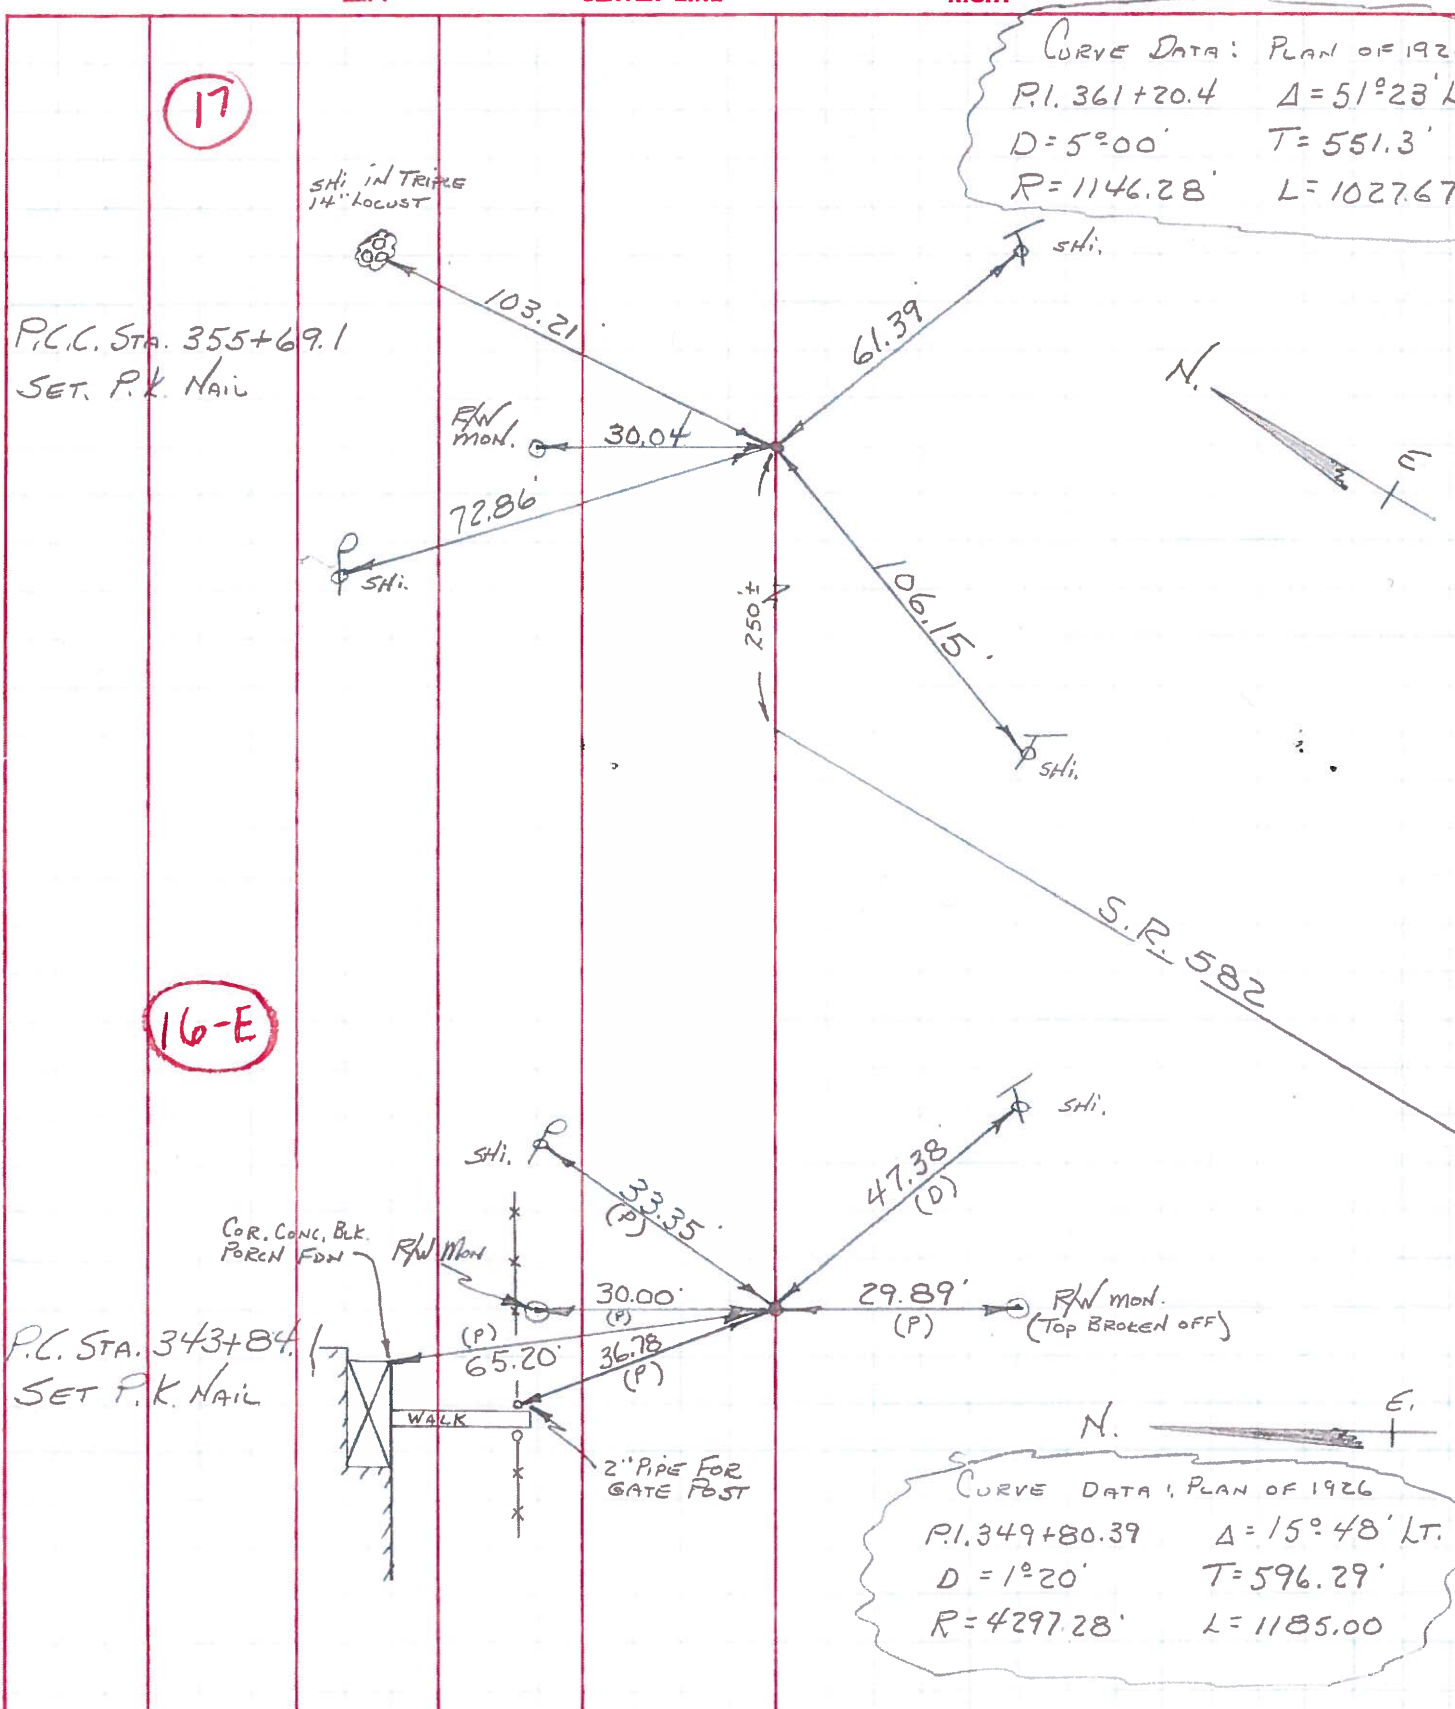 CURVE DATA: PLAN OF 192
P.I. 361+20.4 Δ=51°23' L
D=5°00' T=551.3'
R=1146.28' L=1027.67
17
SHi IN TRIPLE
14" LOCUST
SHi.
103.21'
61.39
P.C.C. STA. 355+69.1
SET. P.K. NAIL
N.
E
R/W
MON.
30.04'
72.86'
SHi.
250'±
106.15'
SHi.
S.R. 582
16-E
SHi.
SHi.
33.35'
(P)
47.38
(D)
COR. CONC. BLK.
PORCH FDN
R/W MON
30.00'
(P)
29.89'
(P)
R/W MON.
(TOP BROKEN OFF)
P.C. STA. 343+84.1
SET P.K. NAIL
(P)
65.20'
36.78
(P)
WALK
2" PIPE FOR
GATE POST
N.
E.
CURVE DATA: PLAN OF 1926
P.I. 349+80.39 Δ=15°48' LT.
D=1°20' T=596.29'
R=4297.28' L=1185.00